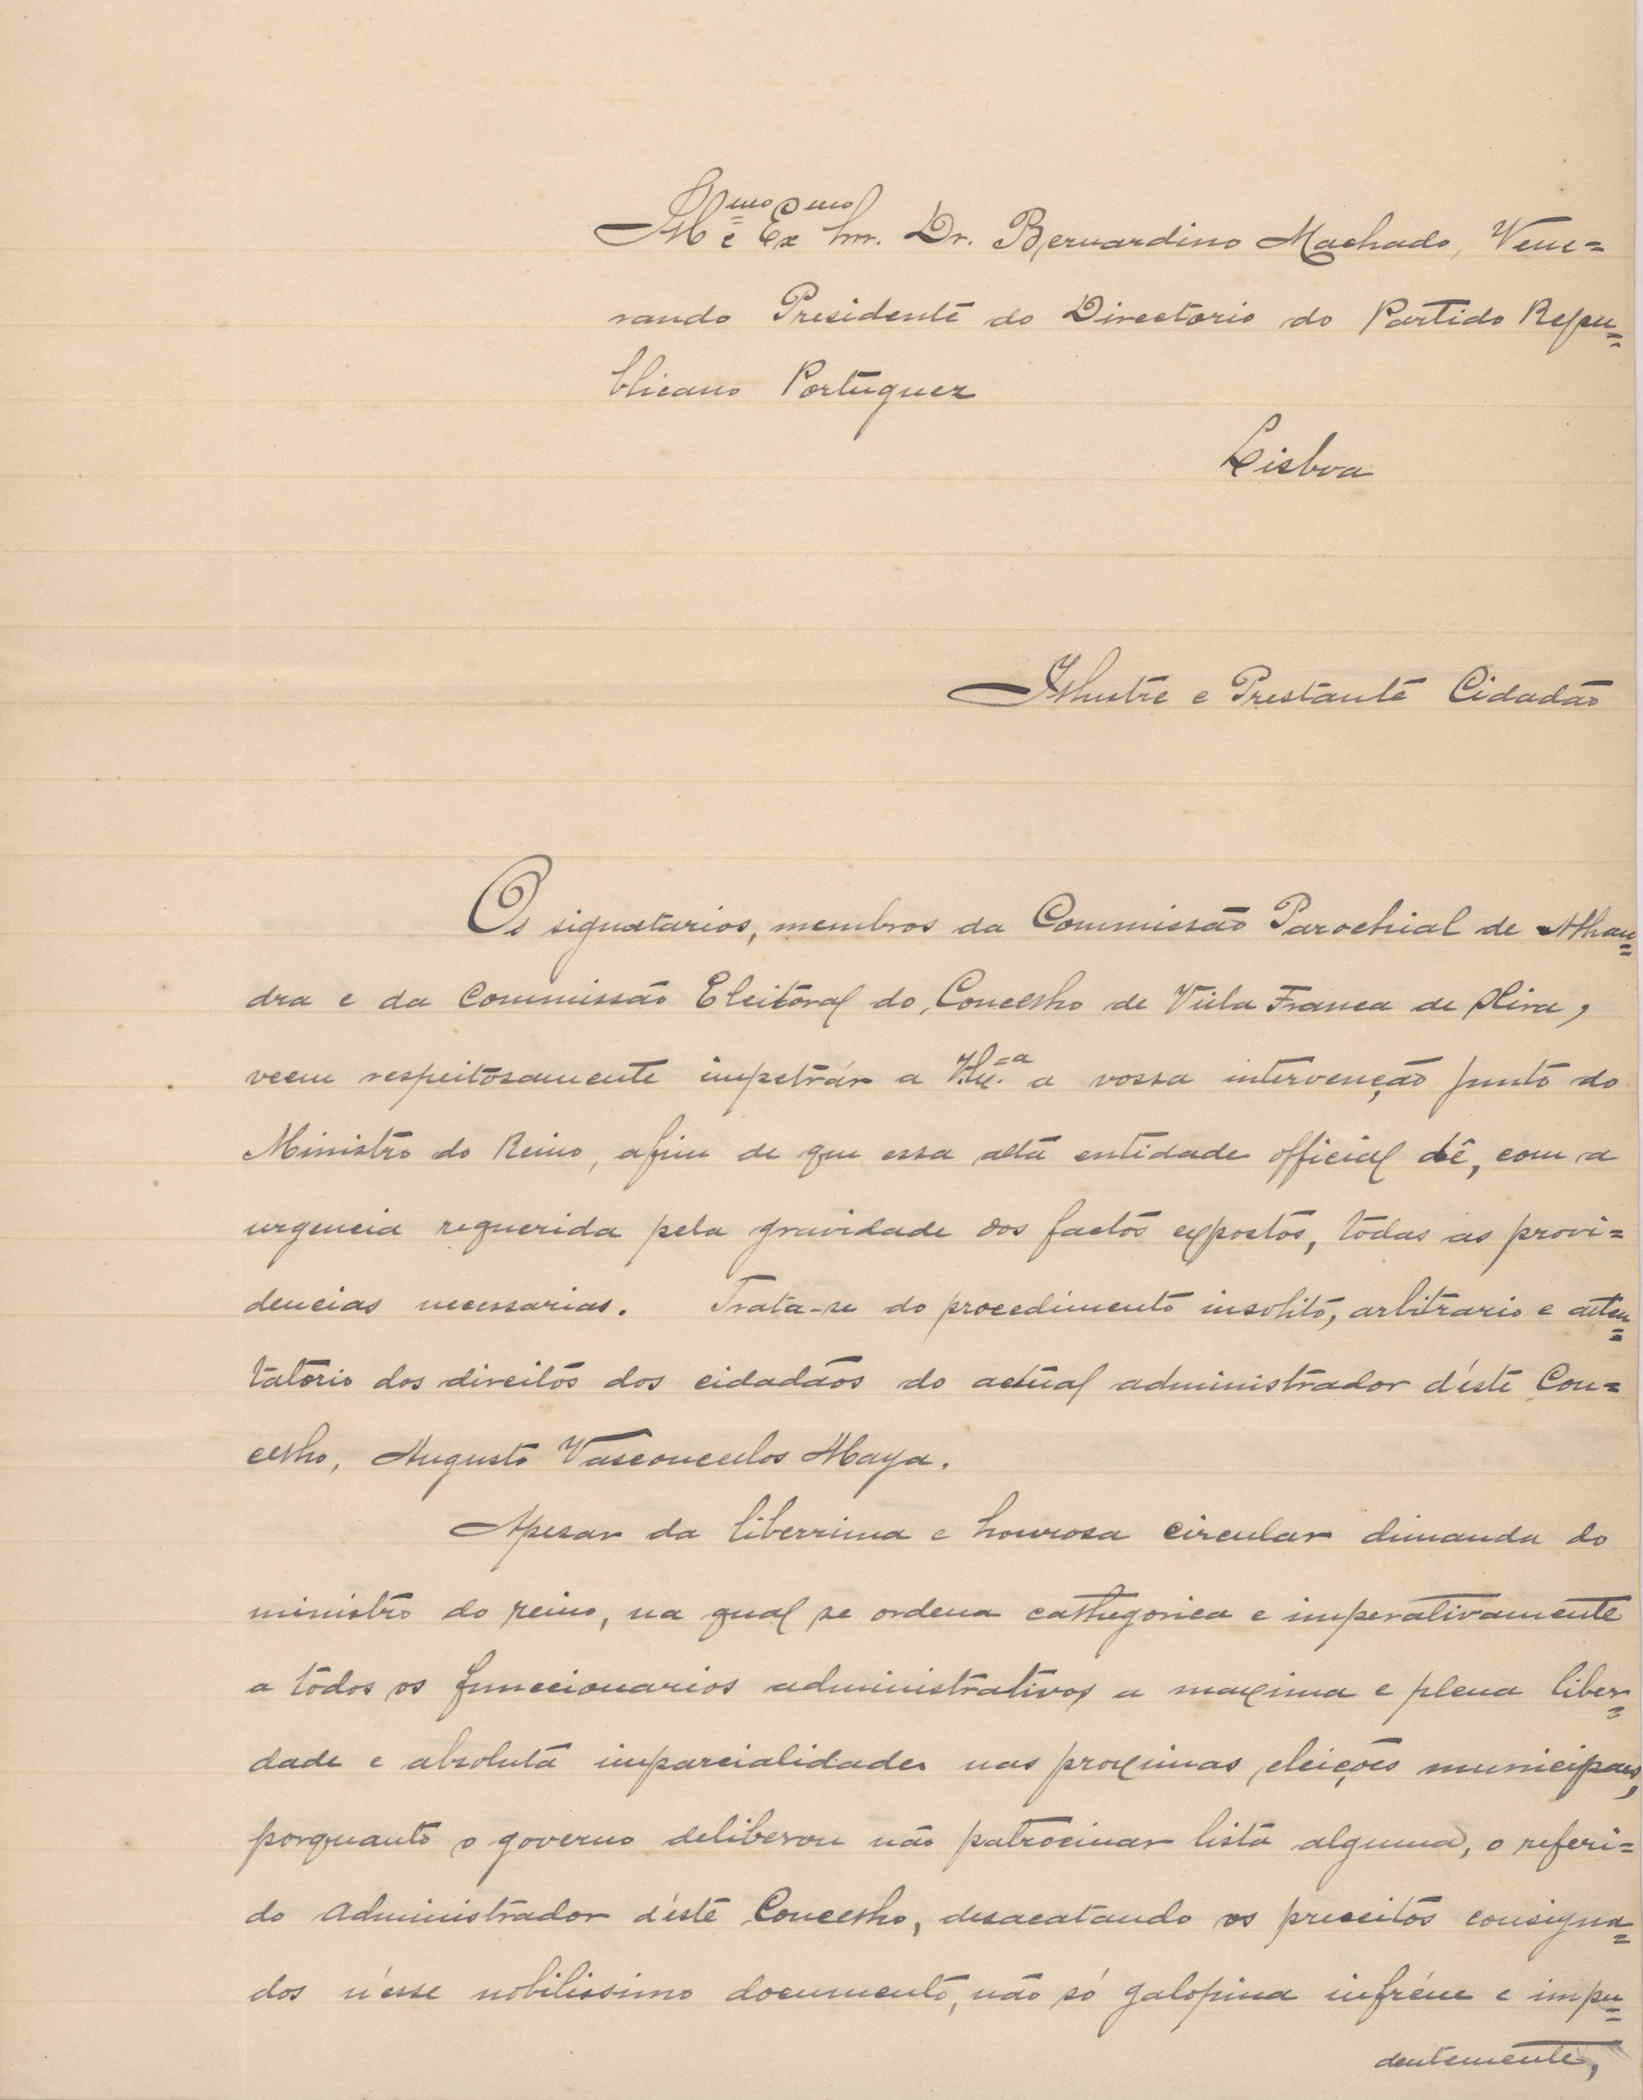 Ill.mo e Ex.mo Snr. Dr. Bernardino Machado, Vene=
rando Presidente do Directorio do Partido Repu=
blicano Portuguez
Lisboa
Illustre e Prestante Cidadão
Os signatarios, membros da Commissão Parochial de Alhan=
dra e da Commissão Eleitoral do Concelho de Villa Franca de Xira,
veem respeitosamente impetrár a V. Ex.a a vossa intervenção junto do
Ministro do Reino, afim de que essa alta entidade official dê, com a
urgencia requerida pela gravidade dos factos expostos, todas as provi=
dencias necessarias. Trata-se do procedimento insolito, arbitrario e atten=
tatorio dos direitos dos cidadãos do actual administrador d'éste Con=
celho, Augusto Vasconcellos Maya.
Apesar da liberrima e honrosa circular dimanda do
ministro do reino, na qual se ordena cathegorica e imperativamente
a todos os funccionarios administrativos a maxima e plena liber=
dade e absoluta imparcialidade nas proximas eleições municipaes,
porquanto o governo deliberou não patrocinar lista alguma, o referi=
do administrador d'éste Concelho, desacatando os preceitos consigna=
dos n'esse nobilissimo documento, não só galopina infréne e impu=
dentemente,